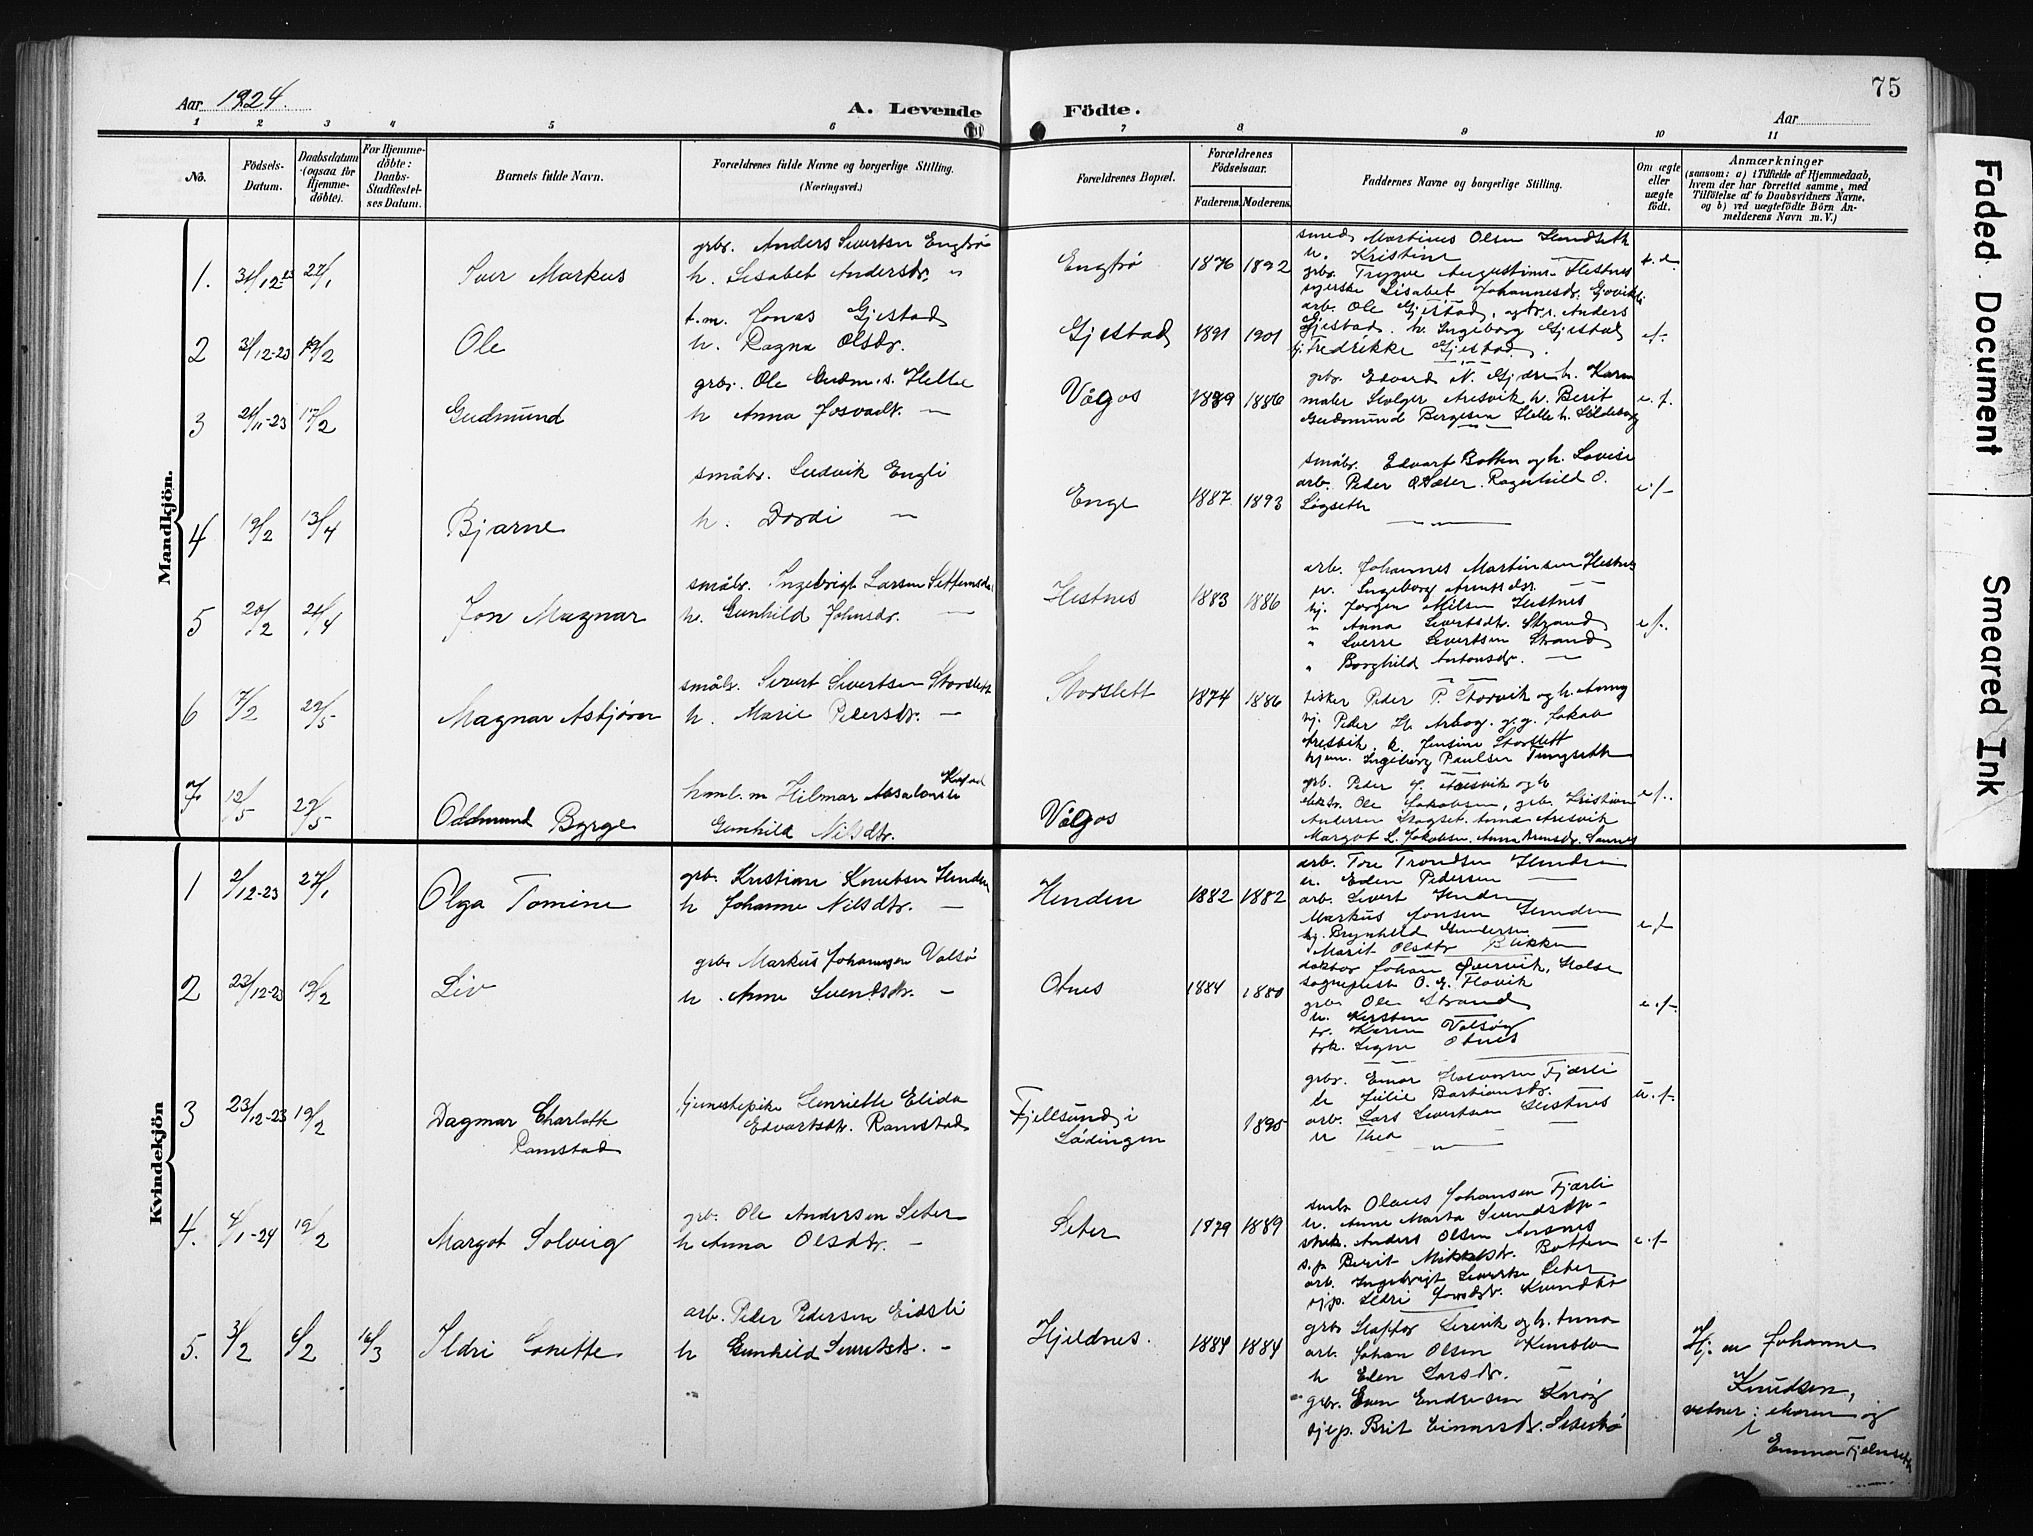 75
Aar 1924.
A. Levende Födte.
Aar
1 2 3 4 5 6 7 8 9 10 11
No.
Födsels-
Datum.
Daabsdatum
(ogsaa for
Hjemme-
döbte).
For Hjemme-
döbte:
Daabs-
Stadfæstel-
ses Datum.
Barnets fulde Navn.
Forældrenes fulde Navne og borgerlige Stilling.
(Næringsvei.)
Forældrenes Bopæl.
Forældrenes
Födselsaar.
Faderens. Moderens.
Faddernes Navne og borgerlige Stilling.
Om ægte
eller
uægte
födt.
Anmærkninger
(saasom: a) i Tilfælde af Hjemmedaab,
hvem der har forrettet samme, med
Tilföielse af to Daabsvidners Navne,
og b) ved uægtefödte Börn An-
melderens Navn m. V.)
Mandkjön.
1. 31/12 23 27/1
Iver Markus
grbr. Anders Sivertsen Engtrø
h. Lisabet Andersdr. "
Engtrø
1876 1892
smed Martinus Olsen Hendseth
h. Kristine
grbr. Trygve Augustinsen Hestnes
syerske Lisabet Johannesdr. Gjøvikli
2 31/12-23 19/2
Ole
t.m. Jonas Gjestad
h. Ragna Olsdr.
Gjestad
1891 1901
arb. Ole Gjestad, Anders
Gjestad. h. Ingeborg Gjestad
tj. Fredrikke Gjestad.
e.f.
3 24/11-23 17/2
Gudmund
grbr. Ole Gudm.s. Helle
h Anna Josvadr. —
Vågos
1889 1886
grbr. Edvard N. Gjøre h. Karen
maler Holger Aresvik h. Berit
Gudmund Bergesen Helle h. Sildeborg
e.f.
4 19/2 13/4
Bjarne
småbr. Ludvik Engli
h. Dordi —
Enge
1887 1893
småbr. Edvart Botten og h. Lovise
arb. Peder O Sæter. Ragnhild O.
Løgseth
e.f-
5 20/2 21/4
Jon Magnar
småbr. Ingebrigt Larsen Settemsdal
h. Gunhild Johnsdr. —
Hestnes
1883 1886
arb. Johannes Martinsen Hestnes
h. Ingeborg Arntsdr.
tj. Jørgen Nilsen Hestnes
" Anna Sivertsdtr. Strand
" Sverre Sivertsen Strand
" Borghild Antonsdr. —
e.f.
6 7/2 29/5
Magnar Asbjørn
småbr. Sivert Sivertsen Storslett
h. Marie Pedersdr. —
Storslett
1874 1886
fisker Peder P. Storvik og h. Anna
tj. Peder H. Arbog. g.g. Jakob
Aresvik. k. Jensine Storslett
hjem. Ingeborg Paulsen Tungseth
7 12/5 29/5
Oddmund Børge
Hilmar Absalonsen
Gunhild Nilsdtr.
Vågos
grb. Peder J. Aresvik og h
elektr. Ole Jakobsen, grb. Kristian
Andersen Skogset. Anna Aresvik
Margot L. Jakobsen. Anna Arnsdr. Sannes
e.f.
Kvindekjön
1 2/12-23 27/1
Olga Tomine
grb. Kristian Knutsen Henden
h Johanne Nilsdtr. —
Henden
1882 1882
arb. Tore Trondsen Henden
h. Eden Pedersen —
arb. Sivert Henden
Markus Jonsen Henden
tj. Brynhild Gundersen —
Marit Olsdtr Bakken
e.f
2 22/12-23 19/2
Liv
grbr Markus Johannesen Valsø
h. Anne Svendsdr. —
Otnes
1884 1880
doktor Johan Qvervik, Halse
sogneprest O. G. Flovik
grb. Ole Strand
h. Kirsten —
fr. Karen Valsøy
frk. Signe Otnes
e.f-
3 23/12-23 19/2
Dagmar Charlotte
Ramstad
tjenestepike Henriette Elida
Edvartsdtr. Ramstad
Fjellsund i
Lødingen
1895
grbr. Einar Halvorsen Fjærli
h Julie Bastiansdtr.
arb. Lars Sivertsen Hestnes
h Thea —
u.f.
4. 4/1-24 19/2
Margot Solveig
grb. Ole Andersen Seter
h Anna Olsdtr. —
Seter
1879 1889
småbr Olaus Johansen Fjærli
h. Anne Marta Svendsdtr -
snek. Anders Olsen Aasnes
s.p Berit Mikkelsdtr. Botten
arb. Ingebrigt Sivertsen Seter
tjp. Ildri Jonsdtr. Kvendbø
e.f-
5. 3/2 6/2 16/3
Ildri Lonette
arb. Peder Pedersen Eidsli
h Gunhild Sivertsdr. —
Hjeldnes.
1884 1884
grbr Staffor Lervik og h. Anna
arb. Johan Olsen
h Eden Larsdr.
grbr. Even Endresen Korøy
tjep. Brit Einarsdr. Seterbø
Hj. av Johanne
Knudsen,
vidner: moren og
Emma Fjelnseth
Faded Document
Smeared Ink